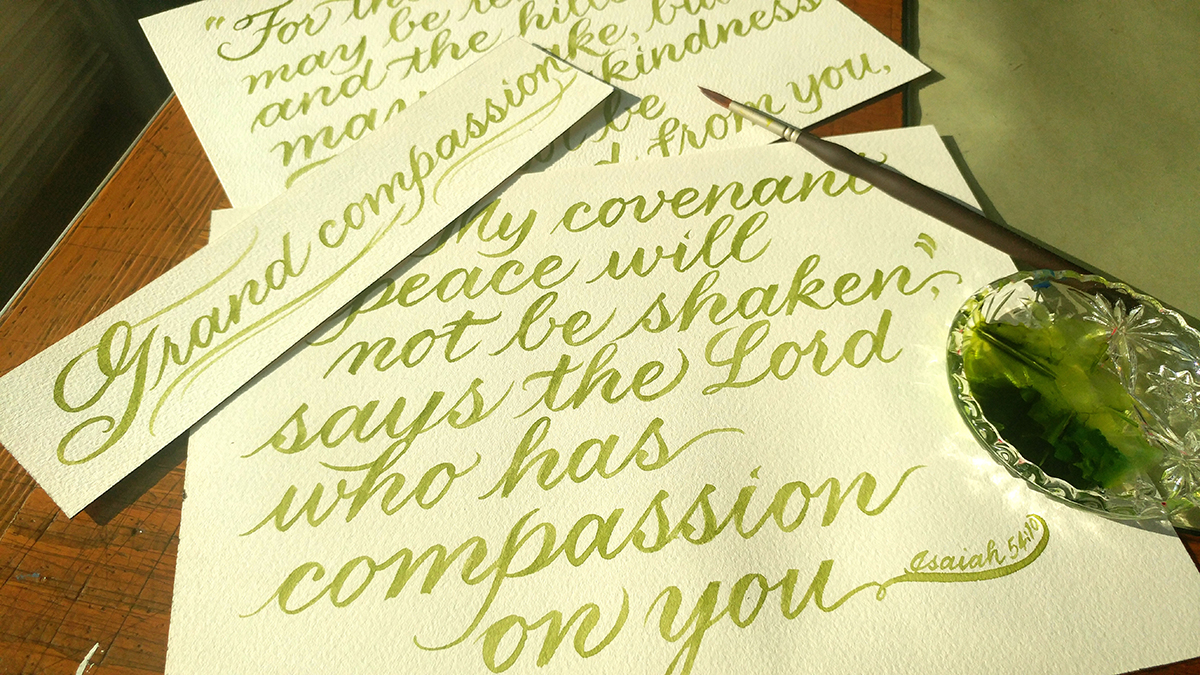 "For the
may be re
and the hills
may ake, but
kindness
be
from you,
Grand compassion
My covenant
peace will
not be shaken",
says the Lord
who has
compassion
on you
Isaiah 54:10